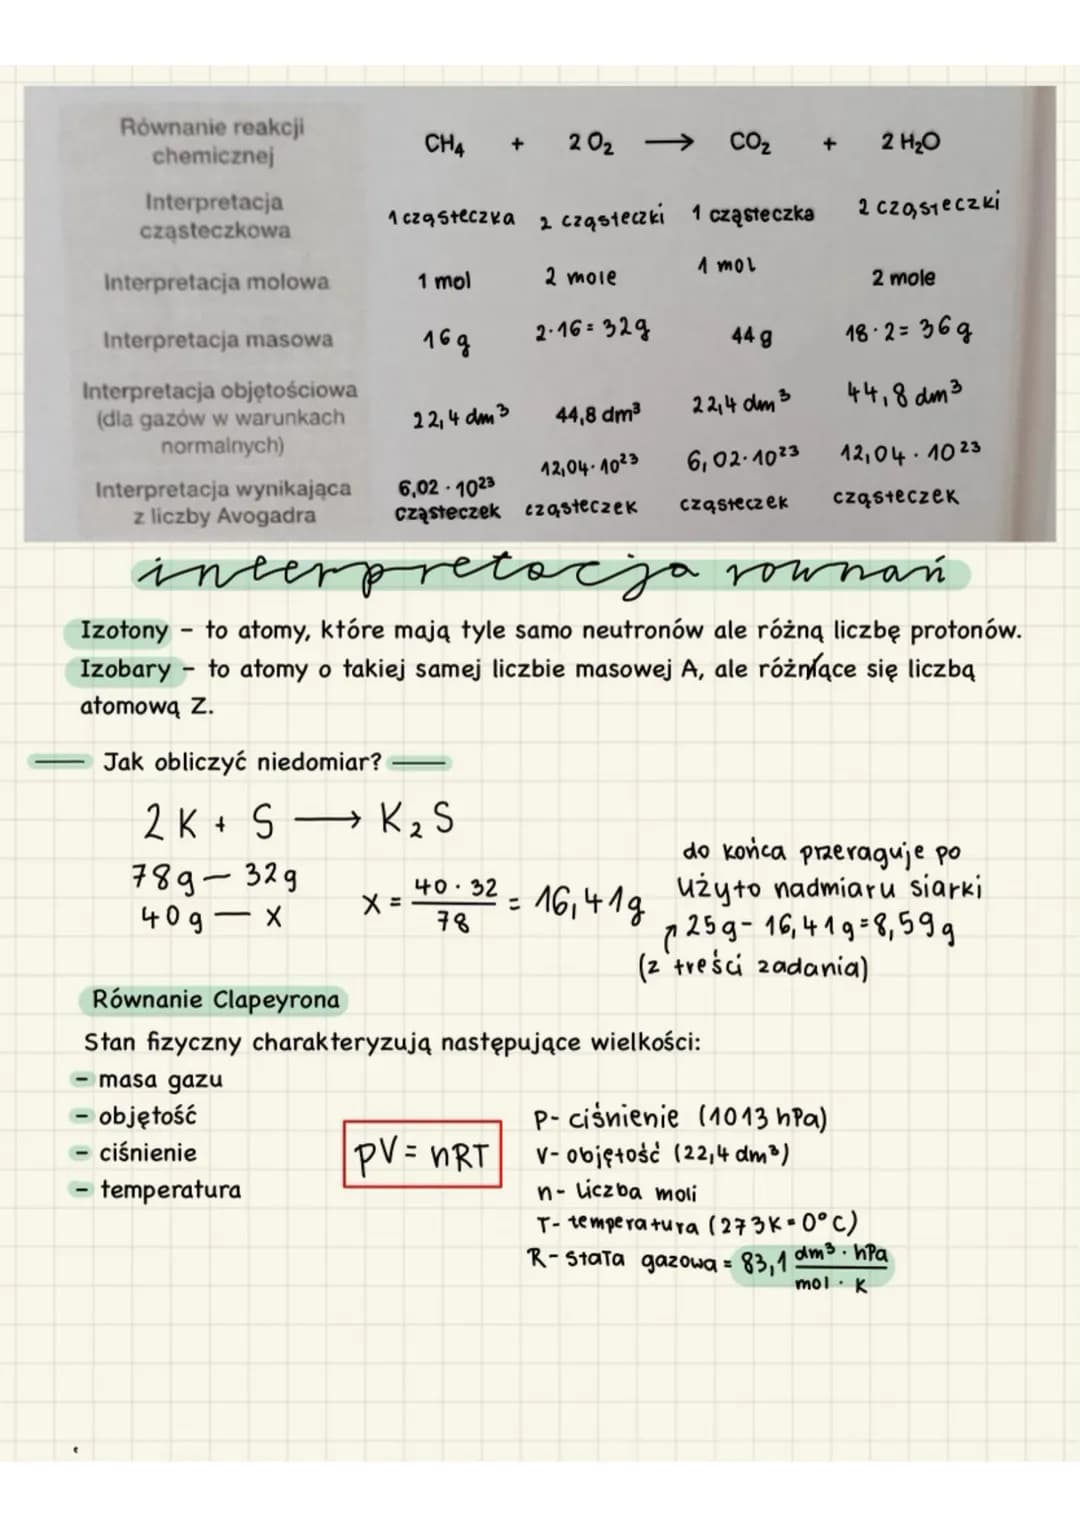 Równanie reakcji chemicznej CH₄ + 2 O₂ → CO₂ + 2 H₂O
Interpretacja cząsteczkowa 1 cząsteczka 2 cząsteczki 1 cząsteczka 2 cząsteczki
Interpretacja molowa 1 mol 2 mole 1 mol 2 mole
Interpretacja masowa 16g 2·16=32g 44g 18·2=36g
Interpretacja objętościowa (dla gazów w warunkach normalnych) 22,4 dm³ 44,8 dm³ 22,4 dm³ 44,8 dm³
Interpretacja wynikająca z liczby Avogadra 6,02·10²³ cząsteczek 12,04·10²³ cząsteczek 6,02·10²³ cząsteczek 12,04·10²³ cząsteczek
interpretacja rownań
Izotony - to atomy, które mają tyle samo neutronów ale różną liczbę protonów.
Izobary - to atomy o takiej samej liczbie masowej A, ale różniące się liczbą
atomową Z.
Jak obliczyć niedomiar?
2 K + S → K₂S
78g — 32g
40g — X
X = 40·32/78 = 16,41g
do końca przeraguje po
użyto nadmiaru siarki
25g - 16,41g = 8,59g
(z treści zadania)
Równanie Clapeyrona
Stan fizyczny charakteryzują następujące wielkości:
- masa gazu
- objętość
- ciśnienie
- temperatura
pV = nRT
p- ciśnienie (1013 hPa)
V- objętość (22,4 dm³)
n- liczba moli
T- temperatura (273K=0°C)
R- stała gazowa = 83,1 dm³·hPa/mol·K